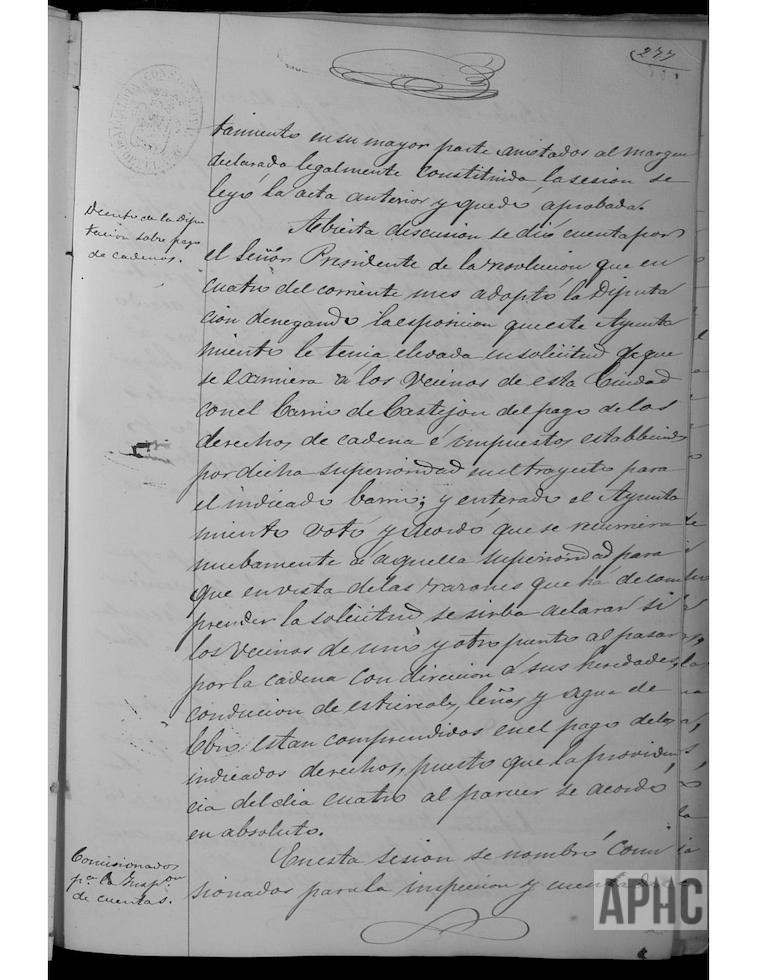 277
tamiento en su mayor parte anotados al margen
declarada legalmente constituida la sesion se
leyó la acta anterior y quedó aprobada.
Decreto de la Dipu
tacion sobre pago
de cadenas.
Abierta discusion se dió cuenta por
el Señor Presidente de la resolucion que en
cuatro del corriente mes adoptó la Diputa
cion denegando la esposicion que este Ayunta
miento le tenia elevada en solicitud de que
se eximiera á los vecinos de esta Ciudad
con el barrio de Castejon del pago de los
derechos de cadena é impuestos establecidos
por dicha superioridad en el trayecto para
el indicado barrio; y enterado el Ayunta
miento votó y acordó que se recurriera
nuebamente á aquella superioridad para
que en vista de las razones que há de com
prender la solicitud se sirba declarar si
los vecinos de uno y otro punto al pasar
por la cadena con direccion á sus heredades,
conducion de estiercoles, leñas y agua de
Ebro, estan comprendidos en el pago de los
indicados derechos, puesto que la providen
cia del dia cuatro al parecer se acordó
en absoluto.
Comisionados
pª la Inspon
de cuentas.
En esta sesion se nombró comi
sionados para la inspeccion y cuentas
APHC